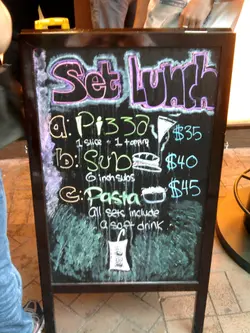 Set Lunch
a: Pizza $35
1 slice - 1 topping
b: Sub $40
6 inch subs
c: Pasta $45
all sets include
a soft drink